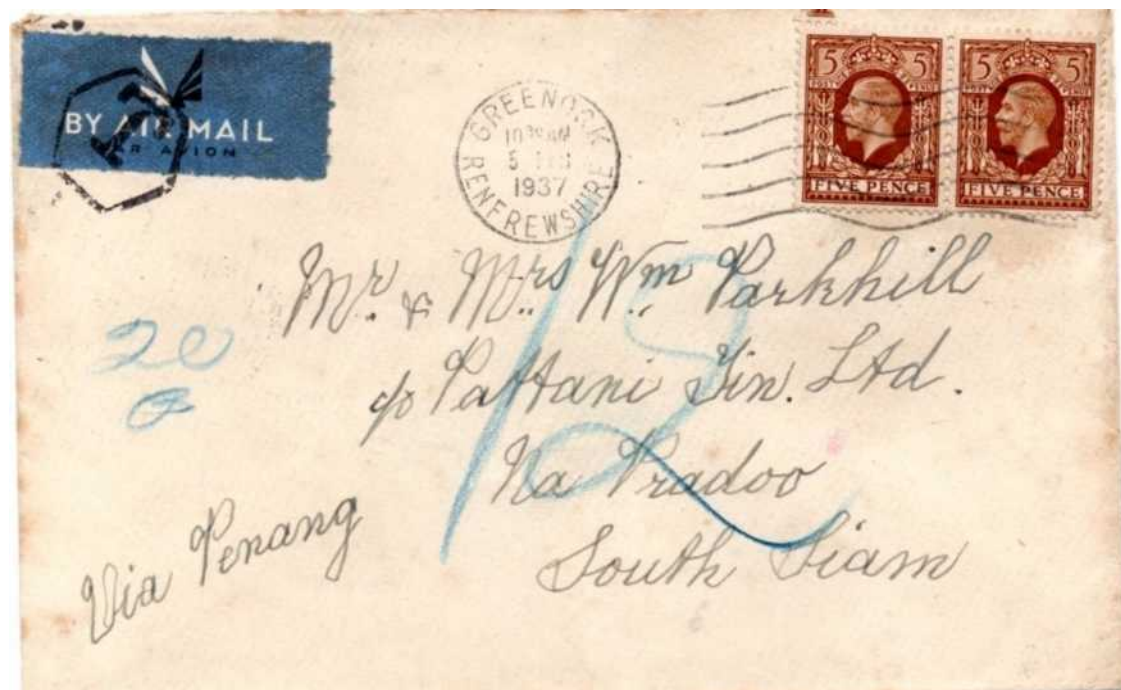 BY AIR MAIL
PAR AVION
GREENOCK
10 30 AM
5 FEB
1937
RENFREWSHIRE
5 5
POSTAGE
FIVE PENCE
5 5
FIVE PENCE
Mr. & Mrs. Wm. Parkhill
c/o Pattani Tin. Ltd.
Na Pradoo
South Siam
Via Penang
20
12